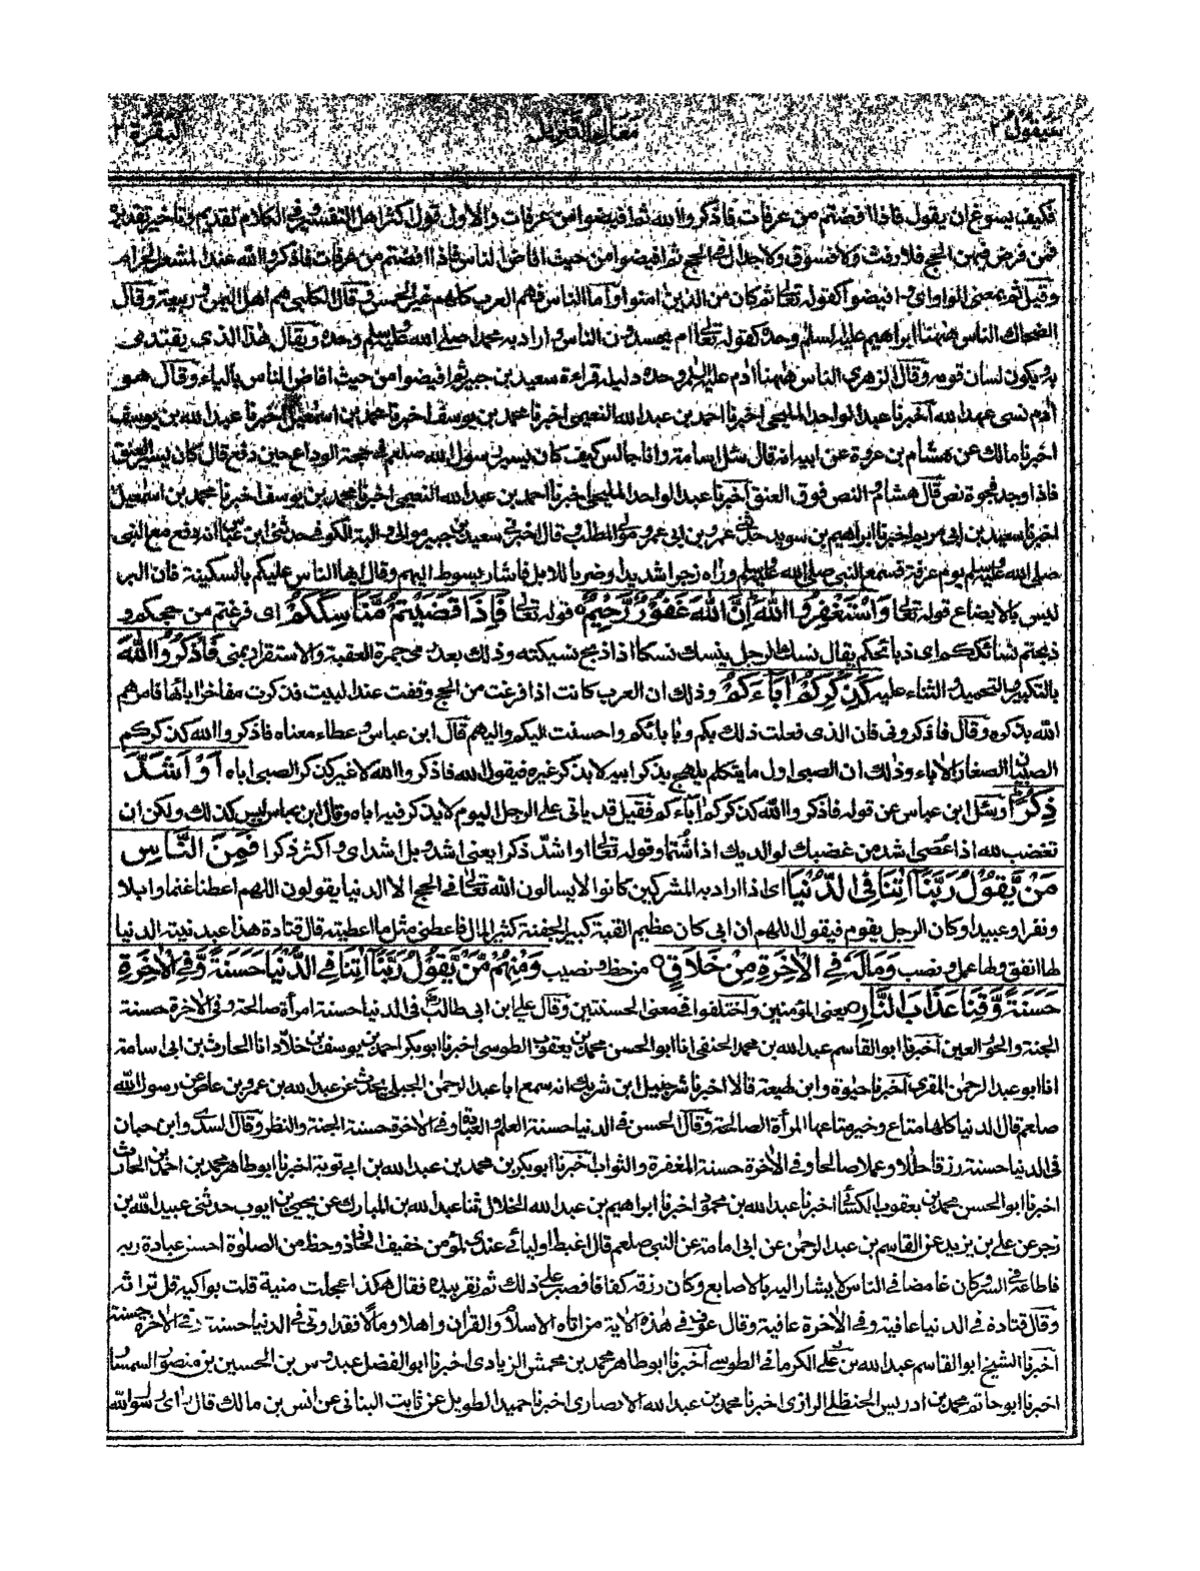 سيقول ٢ معالم التنزيل البقرة ٢
فكيف يسوغ ان يقول فاذا افضتم من عرفات فاذكروا الله ثم افيضوا من عرفات والاول قول اكثر اهل التفسير وفي الكلام تقديم وتاخير تقديره
فمن فرض فيهن الحج فلا رفث ولا فسوق ولا جدال في الحج ثم افيضوا من حيث افاض الناس فاذا افضتم من عرفات فاذكروا الله عند المشعر الحرام
وقيل ثم بمعنى الواو اي وافيضوا كقوله تعالى ثم كان من الذين امنوا واما الناس فهم العرب كلهم غير الحمس قال الكلبي هم اهل اليمن وربيعة وقال
الضحاك الناس ههنا ابراهيم عليه السلام وحده كقوله تعالى ام يحسدون الناس واراد به محمدا صلى الله عليه وسلم وحده ويقال هذا الذي يقتدى
به ويكون لسان قومه وقال الزهري الناس ههنا ادم عليه السلام وحده دليله قراءة سعيد بن جبير ثم افيضوا من حيث افاض الناس بالياء وقال هو
ادم نسي عهد الله اخبرنا عبد الواحد المليحي اخبرنا احمد بن عبد الله النعيمي اخبرنا محمد بن يوسف اخبرنا محمد بن اسمعيل اخبرنا عبد الله بن يوسف
اخبرنا مالك عن هشام بن عروة عن ابيه انه قال سئل اسامة وانا جالس كيف كان يسير رسول الله صلعم في حجة الوداع حين دفع قال كان يسير العنق
فاذا وجد فجوة نص قال هشام والنص فوق العنق اخبرنا عبد الواحد المليحي اخبرنا احمد بن عبد الله النعيمي اخبرنا محمد بن يوسف اخبرنا محمد بن اسمعيل
اخبرنا سعيد بن ابي مريم اخبرنا ابراهيم بن سويد حدثني عمرو بن ابي عمرو مولى المطلب قال اخبرني سعيد بن جبير مولى والبة الكوفي حدثني ابن عباس انه دفع مع النبي
صلى الله عليه وسلم يوم عرفة فسمع النبي صلى الله عليه وسلم وراه زجرا شديدا وضربا للابل فاشار بسوطه اليهم وقال ايها الناس عليكم بالسكينة فان البر
ليس بالايضاع قوله تعالى وَاسْتَغْفِرُوا اللّٰهَ اِنَّ اللّٰهَ غَفُوْرٌ رَّحِيْمٌ قوله تعالى فَاِذَا قَضَيْتُمْ مَّنَاسِكَكُمْ اى فرغتم من حجكم و
ذبحتم نسائككم اى ذبائحكم يقال نسك الرجل ينسك نسكا اذا ذبح نسيكته وذلك بعد رمى جمرة العقبة والاستقرار بمنى فَاذْكُرُوا اللّٰهَ
بالتكبير والتحميد والثناء عليه كَذِكْرِكُمْ اٰبَآءَكُمْ وذلك ان العرب كانت اذا فرغت من الحج وقفت عند البيت فذكرت مفاخر ابائها فامرهم
الله بذكره وقال فاذكروني فان الذى فعلت ذلك بكم وبابائكم واحسنت اليكم واليهم قال ابن عباس وعطاء معناه فاذكروا الله كذكركم
الصبيان الصغار الاباء وذلك ان الصبى اول ما يتكلم يلهج بذكر ابيه لا يذكر غيره فيقول الله فاذكروا الله لا غير كذكر الصبى اباه اَوْ اَشَدَّ
ذِكْرًا وسئل ابن عباس عن قوله فاذكروا الله كذكركم اٰباءكم فقيل قد ياتى على الرجل اليوم لا يذكر فيه اباه وقال ابن عباس ليس كذلك ولكن ان
تغضب لله اذا عصى اشد من غضبك لوالديك اذا شتما وقوله تعالى او اشد ذكرا يعنى اشد وبل اشد اى واكثر ذكرا فَمِنَ النَّاسِ
مَنْ يَّقُوْلُ رَبَّنَآ اٰتِنَا فِى الدُّنْيَا اى اذا اراد به المشركين كانوا لا يسالون الله تعالى في الحج الا الدنيا يقولون اللهم اعطنا غنما وابلا
وبقرا وعبيدا وكان الرجل يقوم فيقول اللهم ان ابى كان عظيم القبة كبير الجفنة كثير المال فاعطنى مثل ما اعطيته قال قتادة هذا عبد نيته الدنيا
لها انفق ولها عمل ونصب وَمَا لَهٗ فِى الْاٰخِرَةِ مِنْ خَلَاقٍ من حظ ونصيب وَمِنْهُمْ مَّنْ يَّقُوْلُ رَبَّنَآ اٰتِنَا فِى الدُّنْيَا حَسَنَةً وَّفِى الْاٰخِرَةِ
حَسَنَةً وَّقِنَا عَذَابَ النَّارِ يعنى المؤمنين واختلفوا فى معنى الحسنتين وقال على بن ابى طالب فى الدنيا حسنة امرأة صالحة وفى الاخرة حسنة
الجنة والحور العين اخبرنا ابو القاسم عبد الله بن محمد الحنفى انا ابو الحسن محمد بن يعقوب الطوسى اخبرنا ابو بكر احمد بن يوسف بن خلاد انا الحارث بن ابى اسامة
انا ابو عبد الرحمن المقرى اخبرنا حيوة وابن لهيعة قالا اخبرنا شرحبيل ابن شريك انه سمع ابا عبد الرحمن الجبلى يحدث عن عبد الله بن عمرو بن عاص عن رسول الله
صلعم قال الدنيا كلها متاع وخير متاعها المرأة الصالحة وقال الحسن فى الدنيا حسنة العلم والعبادة وفى الاخرة حسنة الجنة والنظر وقال السدى وابن حبان
فى الدنيا حسنة رزقا حلالا وعملا صالحا وفى الاخرة حسنة المغفرة والثواب اخبرنا ابو بكر بن محمد بن عبد الله بن ابى توبة اخبرنا ابو طاهر محمد بن احمد بن الحارث
اخبرنا ابو الحسن محمد بن يعقوب الكسائى اخبرنا عبد الله بن محمود اخبرنا ابراهيم بن عبد الله الخلال ثنا عبد الله بن المبارك عن يحيى بن ايوب حدثنى عبيد الله بن
زحر عن على بن يزيد عن القاسم بن عبد الرحمن عن ابى امامة عن النبى صلعم قال اغبط اوليائى عندى لمؤمن خفيف الحاذ ذو حظ من الصلوة احسن عبادة ربه
فاطاعه فى السر وكان غامضا فى الناس لا يشار اليه بالاصابع وكان رزقه كفافا فصبر على ذلك ثم نقر بيده فقال هكذا عجلت منيته قلت بواكيه قل تراثه
وقال قتادة فى الدنيا عافية وفى الاخرة عافية وقال عوف فى هذه الاية من اتاه الله الاسلام والقران واهلا ومالا فقد اوتى فى الدنيا حسنة وفى الاخرة حسنة
اخبرنا الشيخ ابو القاسم عبد الله بن على الكرمانى الطوسى اخبرنا ابو طاهر محمد بن محمش الزيادى اخبرنا ابو الفضل عبدوس بن الحسين بن منصور السمسار
اخبرنا ابو حاتم محمد بن ادريس الحنظلى الرازى اخبرنا محمد بن عبد الله الانصارى اخبرنا حميد الطويل عن ثابت البنانى عن انس بن مالك قال راى رسول الله